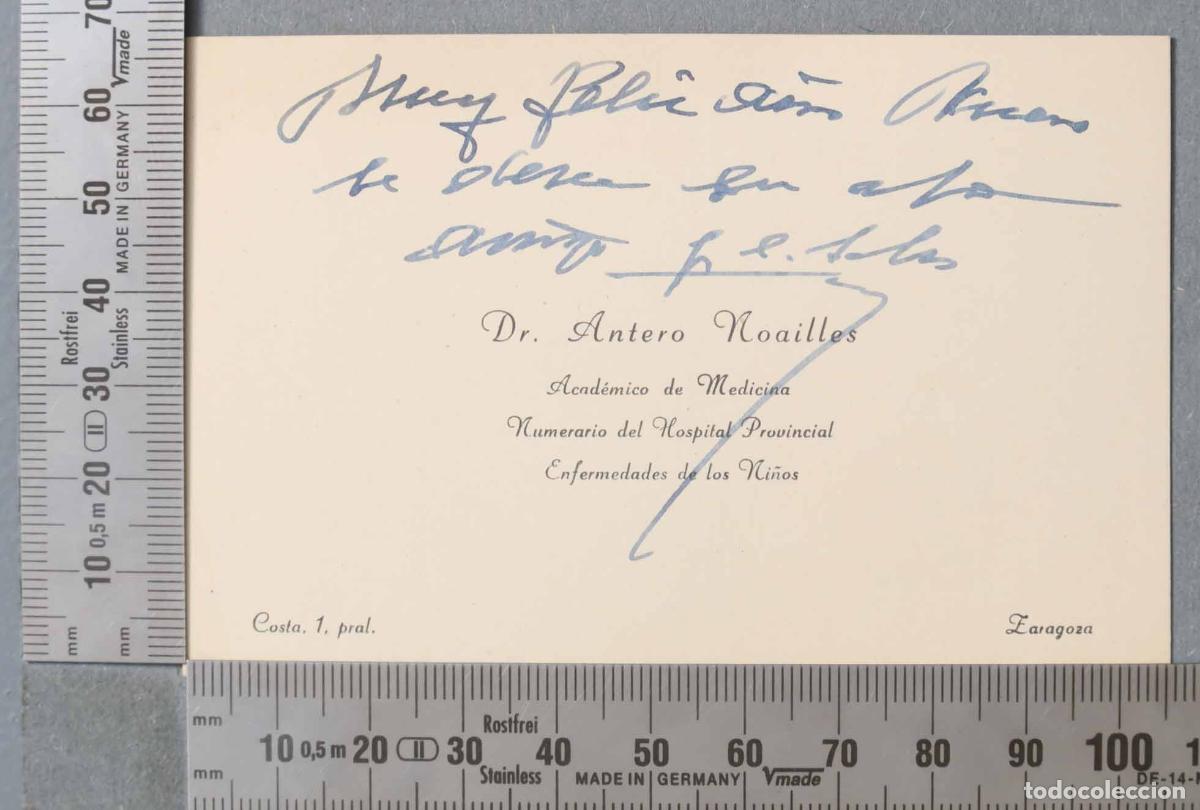 Muy feliz año Nuevo
le desea su afmo
amigo
Dr. Antero Noailles
Académico de Medicina
Numerario del Hospital Provincial
Enfermedades de los Niños
Costa, 1, pral.
Zaragoza
mm 10 0,5 m 20 II 30 40 50 60 70
Rostfrei
Stainless
MADE IN GERMANY Vmade
mm
mm
Rostfrei
10 0,5 m 20 II 30 40 50 60 70 80 90 100
mm
Stainless
MADE IN GERMANY Vmade
todocoleccion